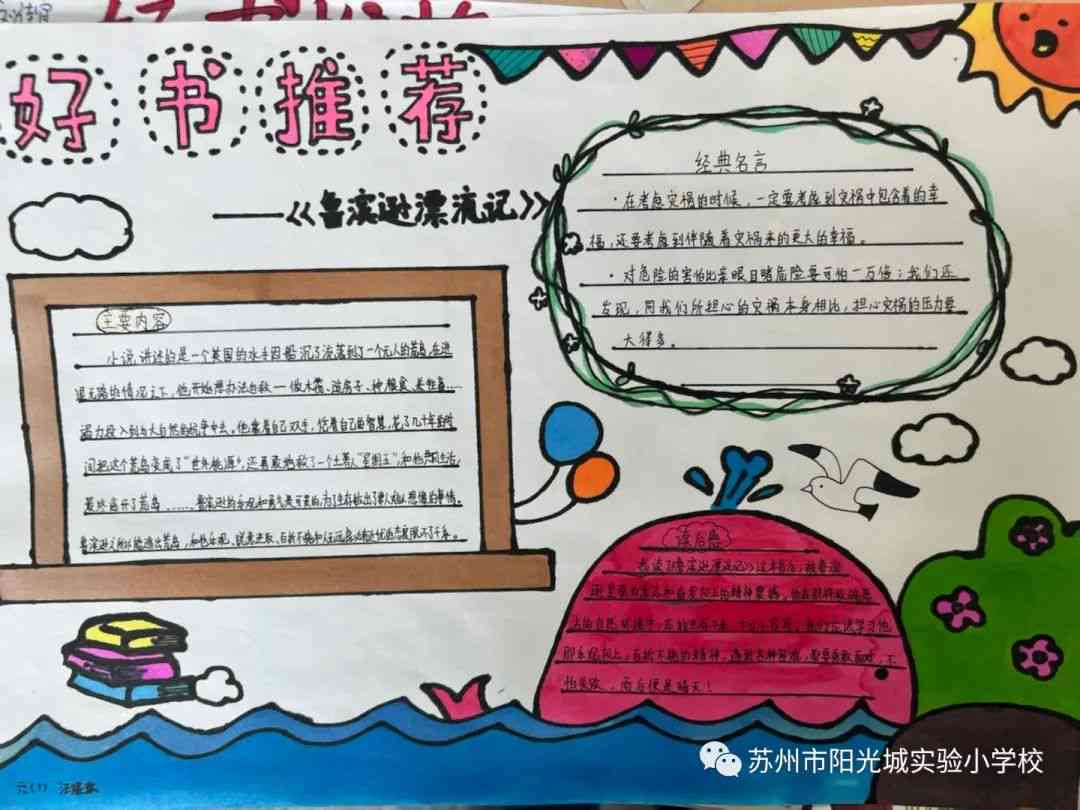 好书推荐
——《鲁滨逊漂流记》
经典名言
·在考虑灾祸的时候，一定要考虑到灾祸中包含着的幸
福，还要考虑到伴随着灾祸来的更大的幸福。
·对危险的害怕比亲眼目睹危险要可怕一万倍；我们还
发现，同我们所担心的灾祸本身相比，担心灾祸的压力要
大得多。
主要内容
小说讲述的是一个英国的水手因船沉了流落到了一个无人的荒岛，在进
退无路的情况之下，他开始想办法自救——做木筏、造房子、种粮食、养牲畜……
竭力投入到与大自然的抗争中去。他靠着自己双手，凭着自己的智慧，花了几十年的时
间把这个荒岛变成了“世外桃源”，还勇敢地救了一个土著人“星期五”，和他一起生活，
最终离开了荒岛……鲁滨逊的乐观和勇气是可嘉的，为了生存做出了常人难以想像的事情。
鲁滨逊之所以能逃出荒岛，和他乐观、锐意进取、百折不挠和
读后感
读了《鲁滨逊漂流记》这本书后，被鲁滨
逊坚强的意志和奋发向上的精神震撼，
的自然环境下，
学习他
那乐观向上、百折不挠的精神，遇到各种困难，都要勇敢面对，不
怕失败，雨后便是晴天！
苏州市阳光城实验小学校